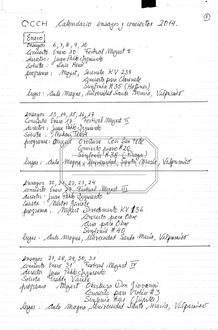 OCCH Calendario ensayos y conciertos 2014.
Enero
ensayos 6, 7, 8, 9, 10
concierto Enero 10 Festival Mozart I
director: Juan Pablo Izquierdo
solista: Luis Rossi
programa: Mozart,
Concierto para Clarinete
Sinfonía #35 (Haffner)
lugar: Aula Magna, Universidad Santa María, Valparaíso
ensayos 13, 14, 15, 16, 17
concierto Enero 17 Festival Mozart II
director: Juan Pablo Izquierdo
solista:
programa: Mozart Obertura Cosi fan tutte
Concierto piano #20
Sinfonía #38 (Praga)
lugar: Aula Magna, Universidad Santa María, Valparaíso
ensayos 20, 21, 22, 23, 24
concierto Enero 24 Festival Mozart III
director: Juan Pablo Izquierdo
solista:
programa, Mozart Divertimento KV 136
Concierto para Oboe
Sinfonía #40
lugar: Aula Magna, Universidad Santa María, Valparaíso
ensayos 27, 28, 29, 30, 31
concierto Enero 31 Festival Mozart IV
director: Juan Pablo Izquierdo
solista:
programa: Mozart Obertura Don Giovanni
Concierto para Violín #3
Sinfonía #41 (Júpiter)
lugar: Aula Magna, Universidad Santa María, Valparaíso